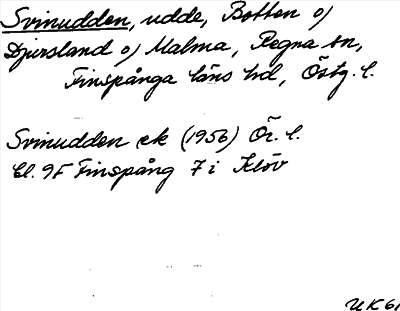 Svinudden, udde, Botten o/
Djursland o/ Malma, Regna sn,
Finspånga läns hd, Östg. l.
Svinudden ek (1956) Ör. l.
bl. 9F Finspång 7 i Klöv
UK 61